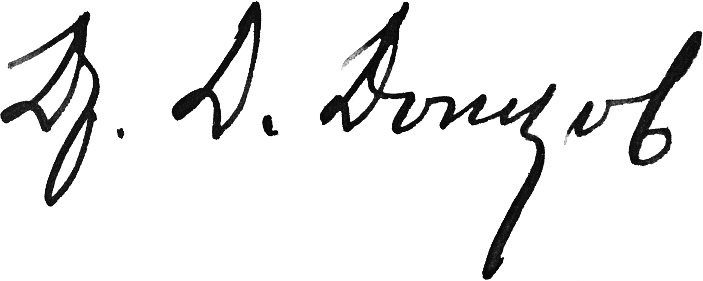 Др. Д. Донцов